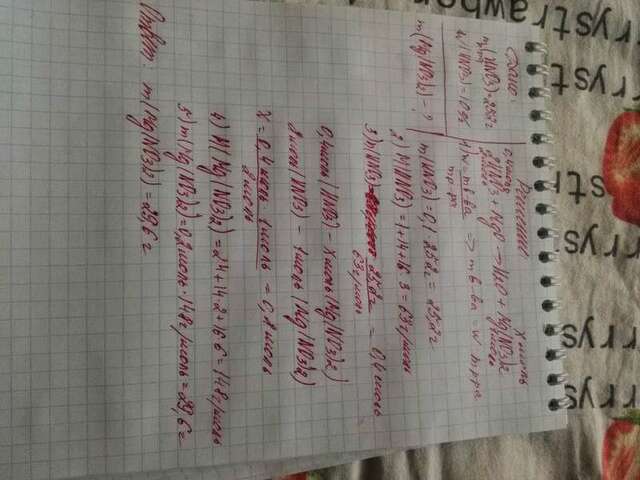 Дано:
m(HNO3)=252г
w(HNO3)=10%
m(Mg(NO3)2)-?
Решение
0,4 моль X моль
2HNO3 + MgO → H2O + Mg(NO3)2
2 моль 1 моль
1) w = m в-ва / m р-ра => m в-ва = w · m р-ра
m(HNO3) = 0,1 · 252 = 25,2г
2) M(HNO3) = 1+14+16·3 = 63 г/моль
3) n(HNO3) = 25,2г / 63 г/моль = 0,4 моль
0,4 моль (HNO3) - X моль (Mg(NO3)2)
2 моль (HNO3) - 1 моль (Mg(NO3)2)
X = 0,4 моль · 1 моль / 2 моль = 0,2 моль
4) M(Mg(NO3)2) = 24+14·2+16·6 = 148 г/моль
5) m(Mg(NO3)2) = 0,2 моль · 148 г/моль = 29,6 г
Ответ: m(Mg(NO3)2) = 29,6 г
rrystrawber
rryst
str
rrys
rrys